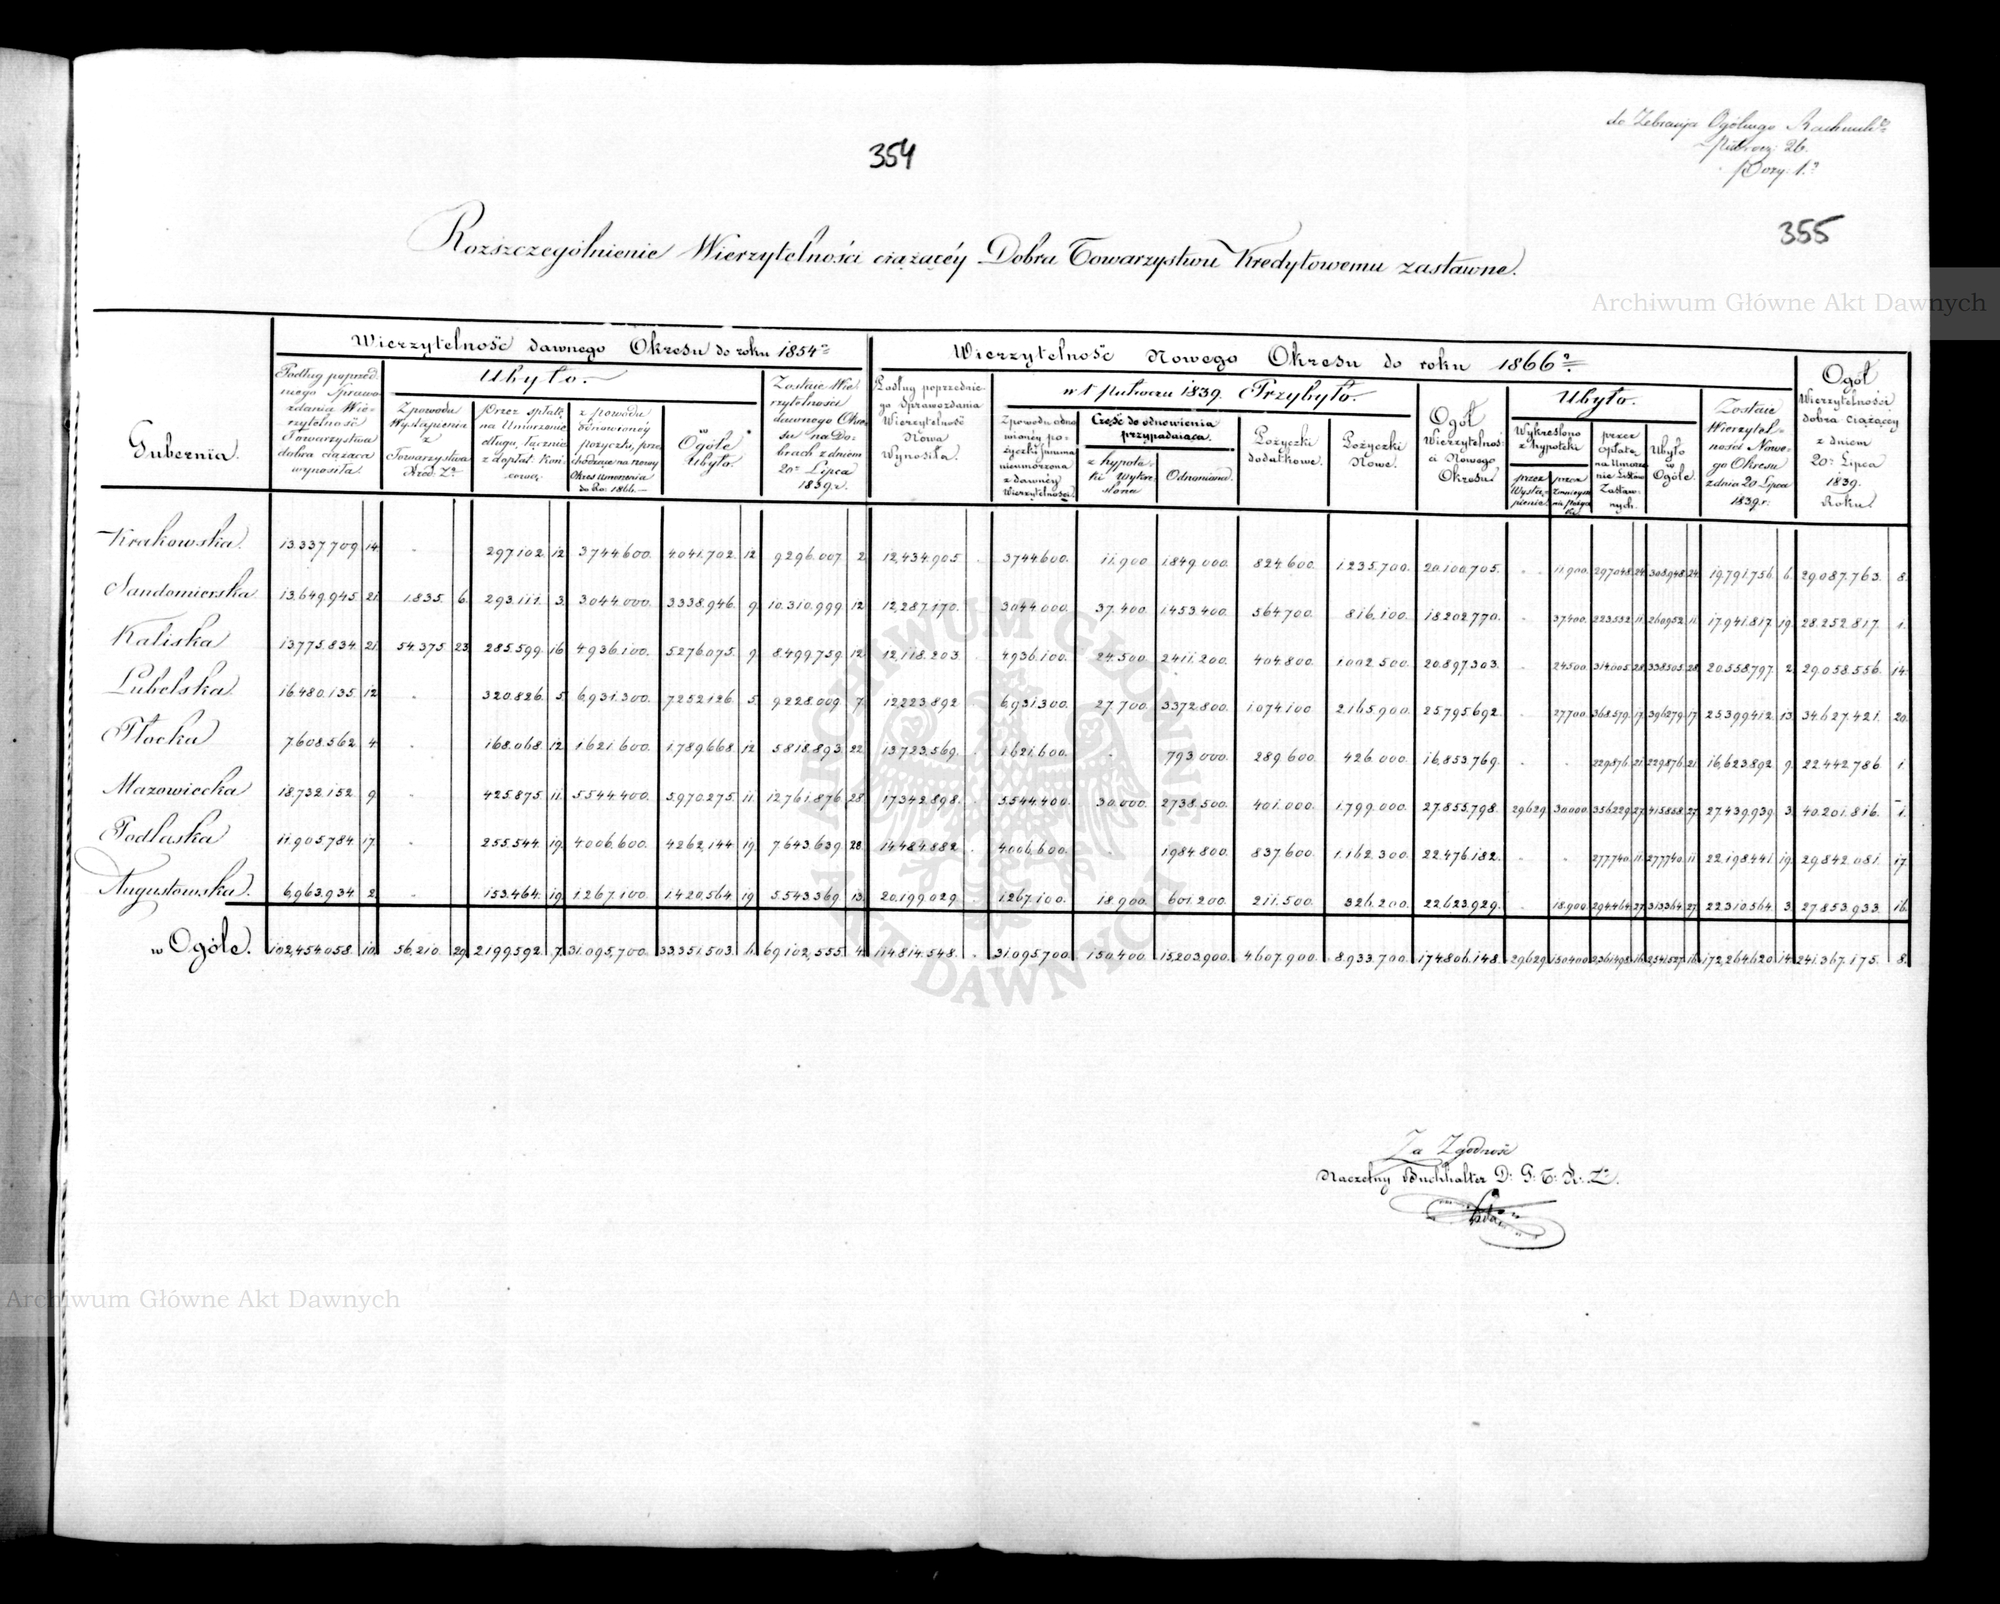 do Zebrania Ogólnego
Pozy. 1.
354
355
Rozszczególnienie Wierzytelności ciążącéy Dobra Towarzystwu Kredytowemu zastawne.
Archiwum Główne Akt Dawnych
Gubernia.
Wierzytelność dawnego Okresu do roku 1854
Podług poprzedniego Sprawozdania Wierzytelność Towarzystwa dobra ciążąca wynosiła.
Ubyło.
Z powodu Wystąpienia z Towarzystwa
Przez spłatę na Umorzenie długu, łącznie z dopłat. końcową.
z powodu odnowionéy pożyczki, przechodzące na nowy Okres Umorzenia do Ro: 1866.
w Ogóle Ubyło.
Zostaie Wierzytelności dawnego Okresu na Dobrach z dniem 20 Lipca 1839 r.
Wierzytelność Nowego Okresu do roku 1866
Podług poprzedniego Sprawozdania Wierzytelność Nowa Wynosiła.
w 1 Półroczu 1839. Przybyło.
Z powodu odnowionéy pożyczki summa nieumorzona z dawnéy Wierzytelności
Część do odnowienia przypadaiąca.
z hypoteki wykreślona
Odnowiona.
Pożyczki dodatkowe.
Pożyczki Nowe.
Ogół Wierzytelności Nowego Okresu.
Ubyło.
Wykreślono z hypoteki
przez Wystąpienie
przez opłatę na Umorzenie Listów Zastawnych.
Ubyło w Ogóle.
Zostaie Wierzytelności Nowego Okresu z dnia 20 Lipca 1839 r.
Ogół Wierzytelności dobra ciążącéy z dniem 20 Lipca 1839. Roku.
Krakowska. 13.337.709. 14 - 297.102. 12 3.744.600. 4.041.702. 12 9.296.007. 2 12,434.905. 3.744.600. 11.900 1.849.000. 824.600. 1.235.700. 20.100.705. - 11.900. 297.048. 24 308.948. 24 19.791.756. 6. 29.087.763. 8.
Sandomierska. 13.649.945. 21 1.835. 6. 293.111. 3. 3.044.000. 3.338.946. 9. 10.310.999. 12 12,287.170. 3.044.000. 37.400 1.453.400. 564.700. 816.100. 18.202.770. - 37.400. 223.552. 11 260.952. 11 17.941.817. 19. 28.252.817. 1.
Kaliska 13.775.834. 21 54.375. 23 285.599. 16 4.936.100. 5.276.075. 9. 8.499.759. 12 12,118.203. 4.936.100. 24.500. 2.411.200. 404.800. 1.002.500. 20.897.303. - 24.500. 314.005. 28 338.505. 28 20.558.797. 2. 29.058.556. 14.
Lubelska. 16.480.135. 12 - 320.826. 5. 6,931.300. 7.252.126. 5. 9.228.009. 7. 12,223.892. 6,931.300. 27.700. 3.372.800. 1.074.100 2.165.900. 25.795.692. - 27.700. 368.579. 17 396.279. 17 25.399.412. 13. 34.627.421. 20.
Płocka 7.608.562. 4. - 168.068. 12 1.621.600. 1.789.668. 12 5.818.893. 22 13.723.569. 1.621.600. - 793.000. 289.600. 426.000. 16,853.769. - - 229.876. 21 229.876. 21 16,623.892. 9. 22.442.786. 1
Mazowiecka 18.732.152. 9. - 425.875. 11. 5.544.400. 5.970.275. 11. 12,761.876. 28 17.342.898. 5.544.400. 30.000. 2.738.500. 401.000. 1.799.000. 27.855.798. 29.629. 30.000. 356.229. 27 415.858. 27 27.439.939. 3. 40.201.816. 1.
Podlaska 11.905.784. 17. - 255.544. 19. 4.006.600. 4.262,144. 19. 7.643.639. 28. 14.484.882. 4.006.600. - 1.984.800. 837.600. 1.162.300. 22.476.182. - - 277.740. 11 277.740. 11 22.198.441. 19. 29.842.081. 17.
Augustowska. 6,963.934. 2. - 153.464. 19. 1.267.100. 1.420.564. 19. 5.543.369. 13. 20.199.029. 1.267.100. 18.900. 601.200. 211.500. 326.200. 22.623.929. - 18.900. 294.464. 27 313.364. 27 22.310.564. 3. 27.853.933. 16.
w Ogóle. 102,454.058. 10. 56,210. 29. 2,199.592. 7. 31.095,700. 33.351.503. 6. 69,102,555. 4. 114.814.548. 31.095.700. 150.400. 15.203.900. 4.607.900. 8.933.700. 174.806.148. 29.629. 150.400. 2,361.498. 16 2,541.527. 16 172,264.620. 14. 241.367.175. 8.
ARCHIWUM GŁÓWNE AKT DAWNYCH
Za Zgodność
Naczelny Buchhalter D: G: T: K: Z
Archiwum Główne Akt Dawnych